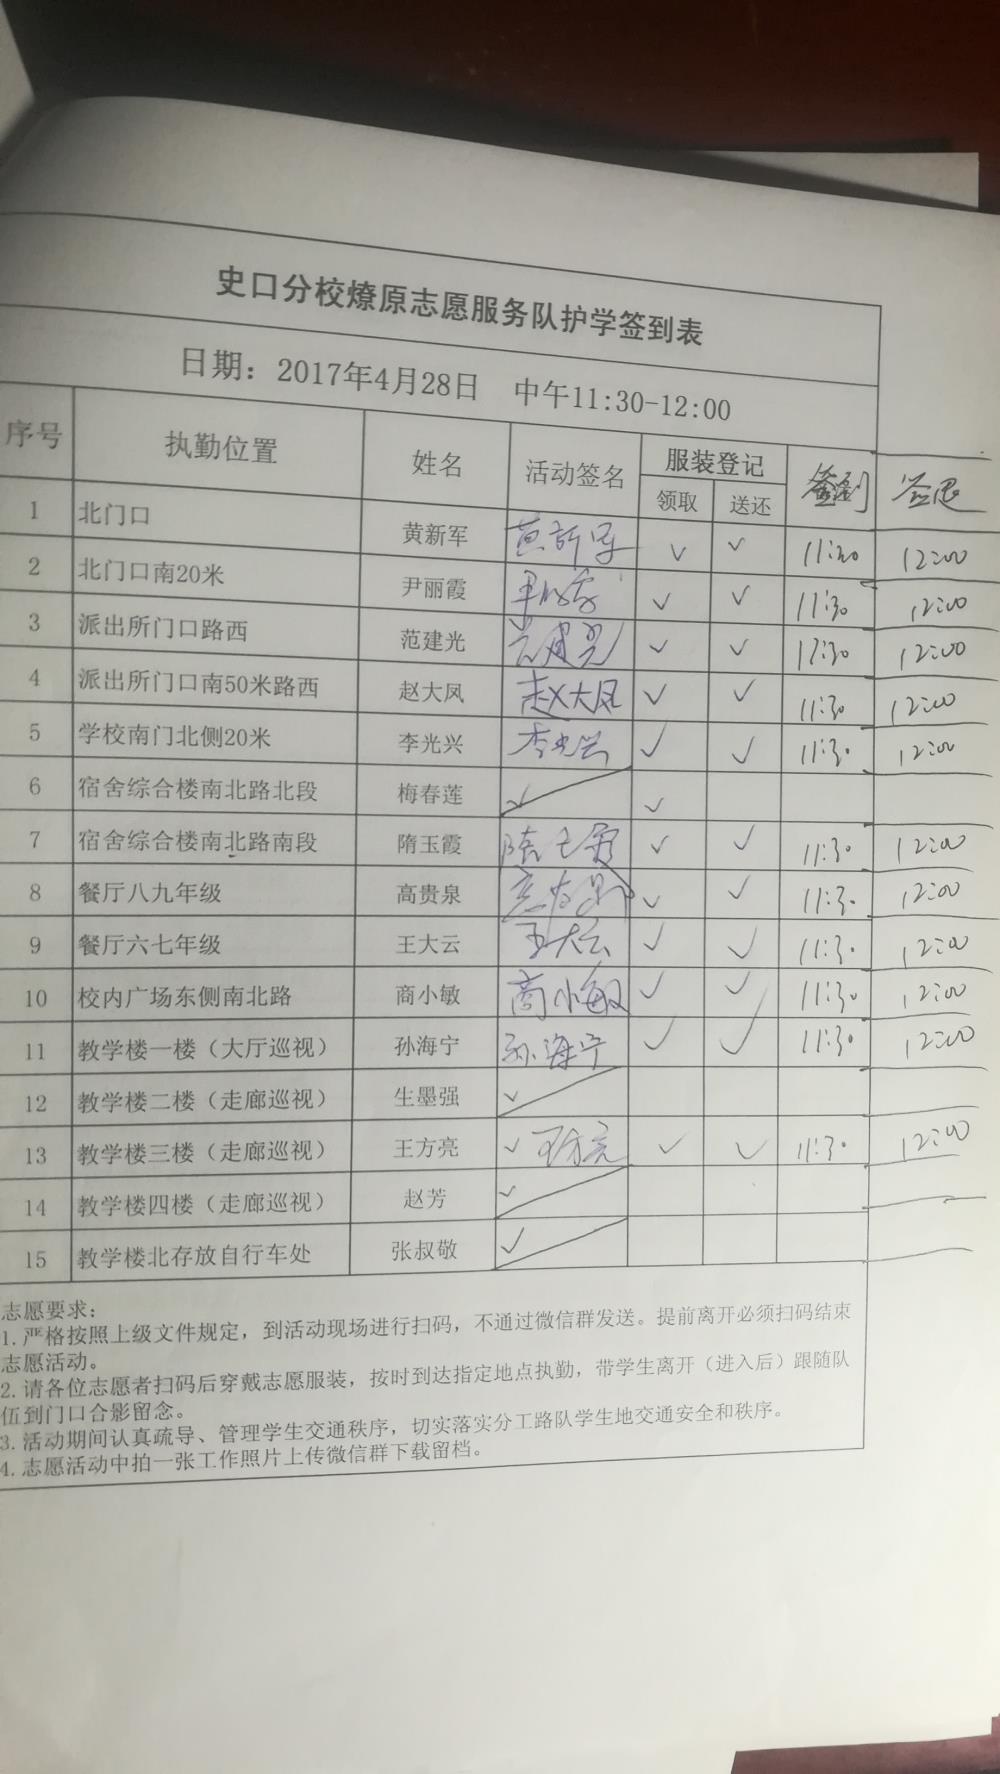 史口分校燎原志愿服务队护学签到表
日期：2017年4月28日 中午11:30-12:00
序号 执勤位置 姓名 活动签名 服装登记 签到 签退
领取 送还
1 北门口 黄新军 黄新军 ✓ ✓ 11:30 12:00
2 北门口南20米 尹丽霞 ✓ ✓ 11:30 12:00
3 派出所门口路西 范建光 范建光 ✓ ✓ 11:30 12:00
4 派出所门口南50米路西 赵大凤 赵大凤 ✓ ✓ 11:30 12:00
5 学校南门北侧20米 李光兴 李光兴 ✓ ✓ 11:30 12:00
6 宿舍综合楼南北路北段 梅春莲 ✓ ✓
7 宿舍综合楼南北路南段 隋玉霞 隋玉霞 ✓ ✓ 11:30 12:00
8 餐厅八九年级 高贵泉 高贵泉 ✓ ✓ 11:30 12:00
9 餐厅六七年级 王大云 王大云 ✓ ✓ 11:30 12:00
10 校内广场东侧南北路 商小敏 商小敏 ✓ ✓ 11:30 12:00
11 教学楼一楼（大厅巡视） 孙海宁 孙海宁 ✓ ✓ 11:30 12:00
12 教学楼二楼（走廊巡视） 生墨强 ✓
13 教学楼三楼（走廊巡视） 王方亮 ✓ 王方亮 ✓ ✓ 11:30 12:00
14 教学楼四楼（走廊巡视） 赵芳 ✓
15 教学楼北存放自行车处 张叔敬 ✓
志愿要求：
1.严格按照上级文件规定，到活动现场进行扫码，不通过微信群发送。提前离开必须扫码结束
志愿活动。
2.请各位志愿者扫码后穿戴志愿服装，按时到达指定地点执勤，带学生离开（进入后）跟随队
伍到门口合影留念。
3.活动期间认真疏导、管理学生交通秩序，切实落实分工路队学生地交通安全和秩序。
4.志愿活动中拍一张工作照片上传微信群下载留档。